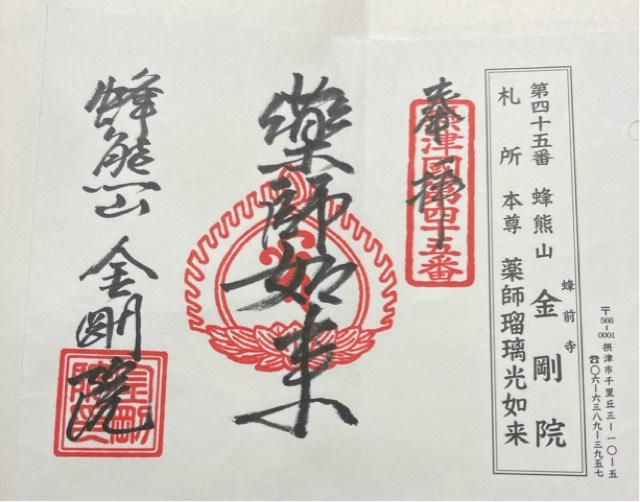 第四十五番 蜂熊山 蜂前寺 金剛院
札所 本尊 薬師瑠璃光如来
〒566-0001 摂津市千里丘三-一〇-五
☎〇六-六三八九-三九五七
奉拝
摂津国第四十五番
薬師如来
蜂熊山 金剛院